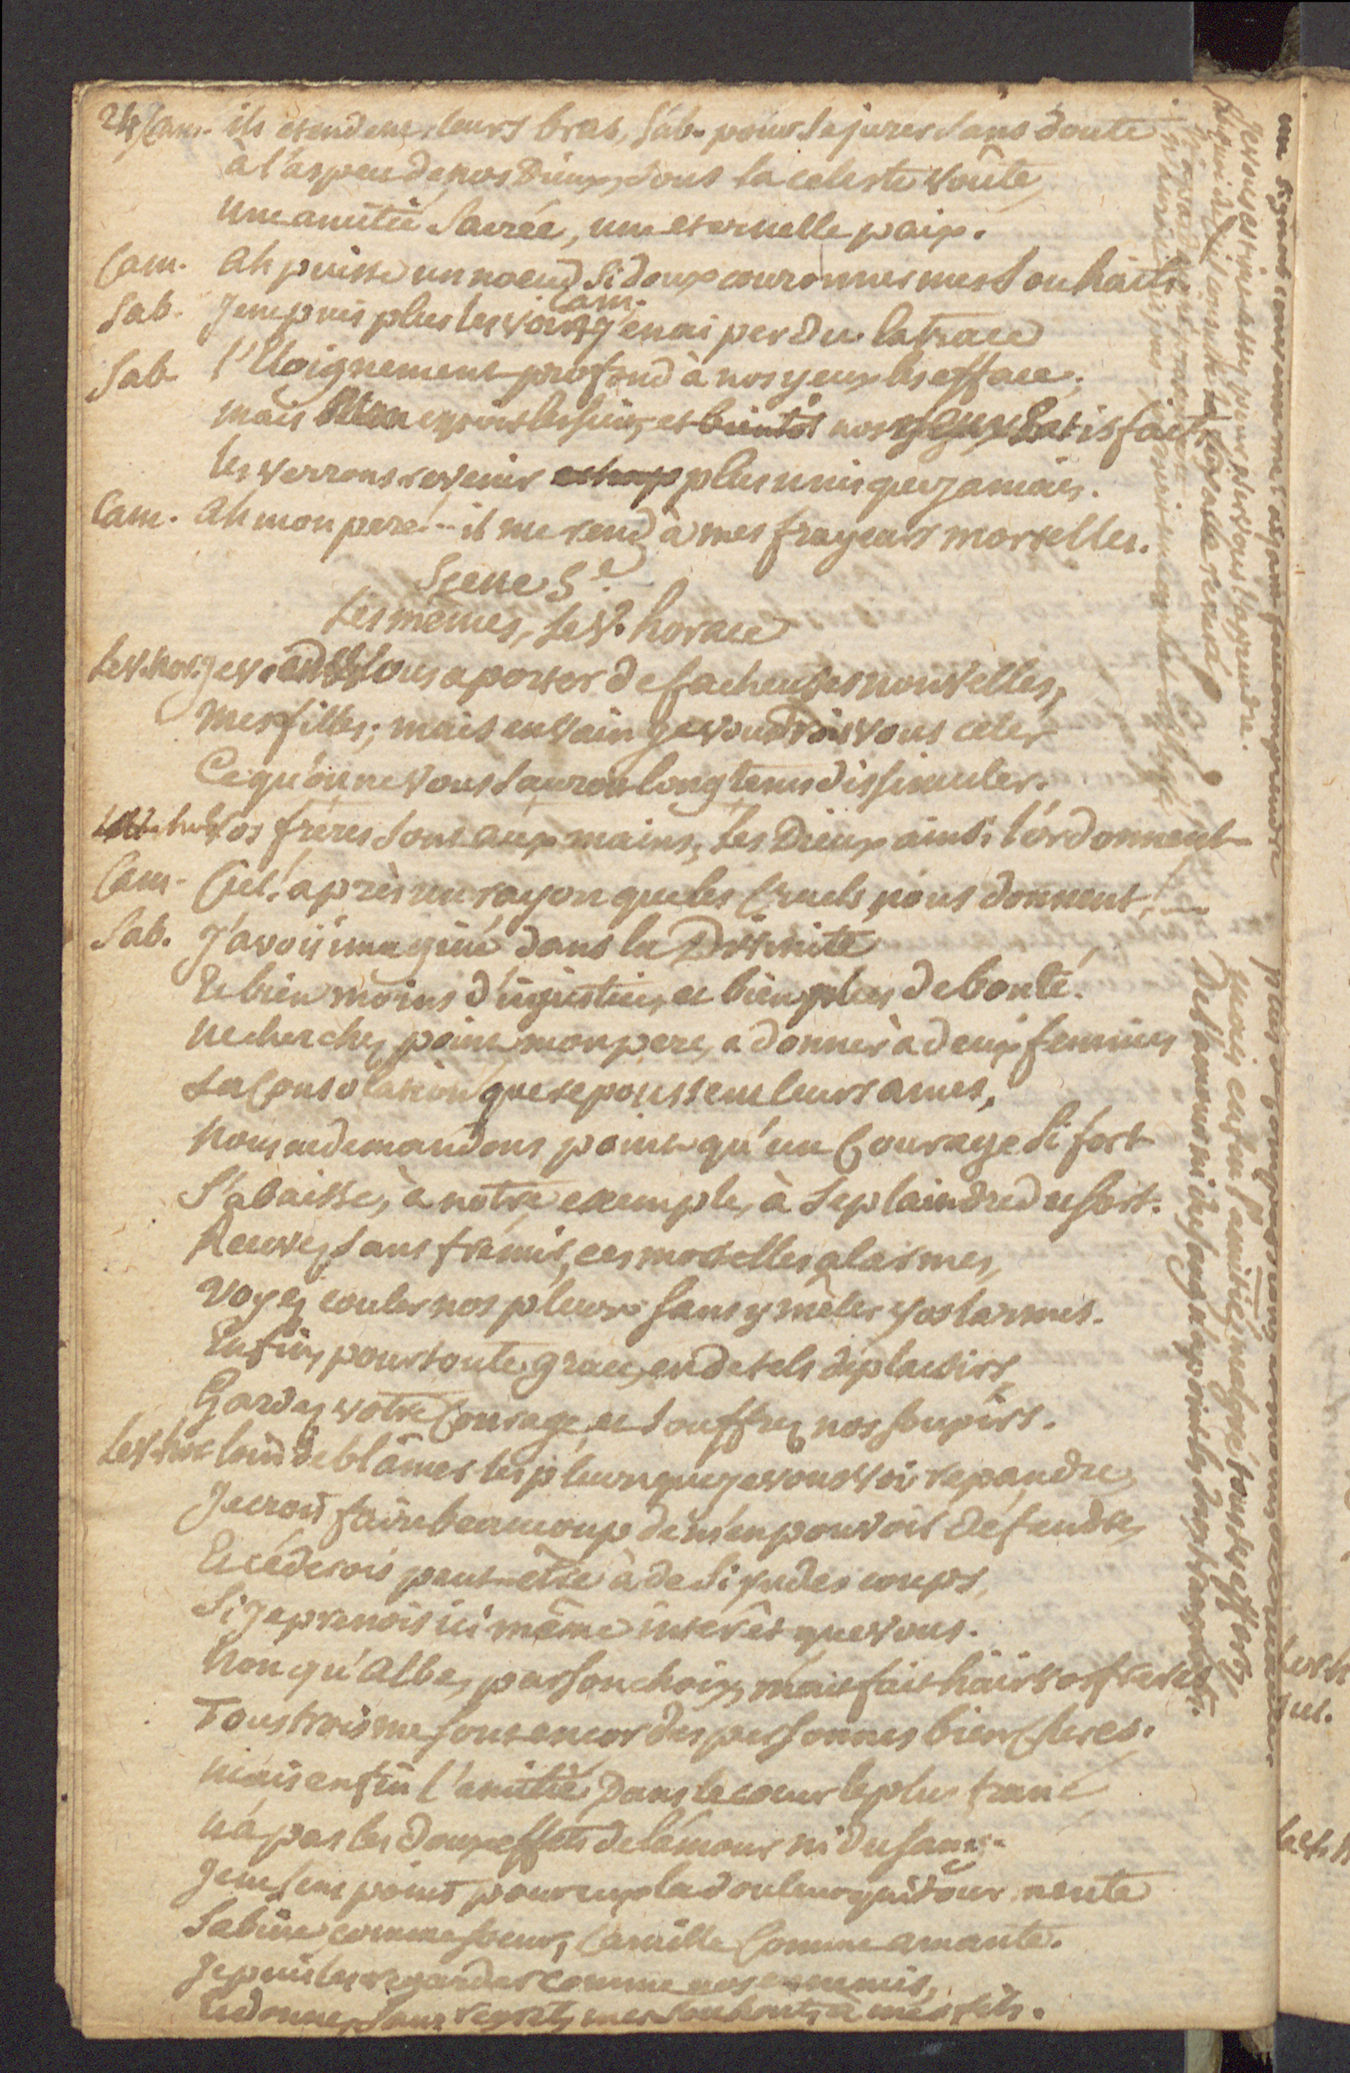 24 Cam. ils etendent leurs bras, Sab. pour se jurer sans doute
à l'aspect de nos Dieux, sous la celeste voûte,
une amitié sacrée, une eternelle paix.
Cam. Ah puisse un noeud si doux couronner mes souhaits
Sab. Je ne puis plus les voir, Cam. j'en ai perdu la trace
Sab. l'Eloignement profond à nos yeux les efface.
mais et bientôt nos yeux satisfaits
les verrons revenir plus unis que jamais.
Cam. Ah mon pere! -- il me rend à mes frayeurs mortelles.
Scene 5.e
Les mêmes, le V. horace
Le V. hor. Je viens vous aporter de facheuses nouvelles,
mes filles; mais en vain je voudrois vous celer
Ce qu'on ne vous sauroit longtems dissimuler.
vos fréres sont aux mains, les Dieux ainsi l'ordonnent
Cam. Ciel! après un rayon que les Cruels nous donnent,
Sab. J'avois imaginé dans la Divinité
Et bien moins d'injustice, et bien plus de bonté.
ne cherchez point mon pere, a donner à deux femmes
La Consolation que repoussent leurs ames,
Nous ne demandons point qu'un Courage si fort
S'abaisse, à notre exemple, à se plaindre du sort.
Recevez sans frémir, ces mortelles alarmes,
Voyez couler nos pleurs sans y mêler vos larmes.
Enfin, pour toute grace, en de tels déplaisirs,
Gardez votre Courage, et souffrez nos soupirs.
Le V. hor. loin de blâmer les pleurs que je vous voi repandre,
Je crois faire beaucoup de m'en pouvoir défendre,
Et céderois peut-être à de si rudes coups,
Si je prenois ici même interêt que vous.
Non qu'Albe, par son choix, m'ait fait haïr vos freres
Tous trois me sont encor des personnes bien cheres.
mais enfin l'amitié Dans le coeur le plus franc
n'a pas les doux effets de l'amour ni du sang.
Je ne sens point pour eux la douleur qui tourmente
Sabine comme soeur, Camille Comme amante.
Je puis les regarder comme nos ennemis,
Et donner sans regret, mes souhaits à mes fils.
Je vous estime assez pour
mais enfin l'amitié, malgré tous ses efforts,
De l'amour ni du sang n'a point les